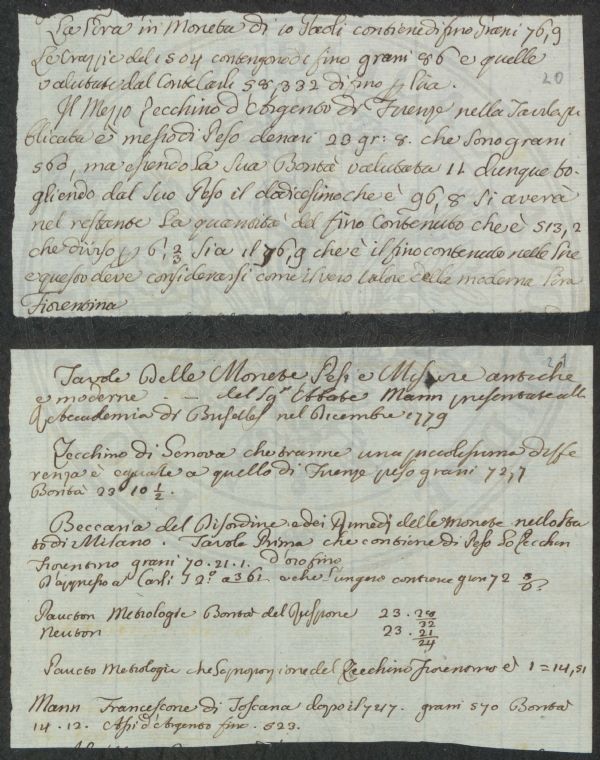 La Lira in Moneta di 10 Paoli contiene di fino Grani 76,9
Le Crazzie del 1504 contengono di fino grani 86 e quelle
valutate dal Conte Carli 58,332 di fino p Lira.
20
Il Mezzo Zecchino d'Argento di Firenze nella Tavola pu
blicata è messo di Peso denari 23 gr: 8. che sono grani
560, ma essendo la sua Bontà valutata 11 dunque to-
gliendo dal suo Peso il dodicesimo che è 96,8 si averà
nel restante la quantità del fino Contenuto che è 513,2
che diviso p 6 2/3 sia il 76,9 che è il fino contenuto nelle Lire
e questo deve considerarsi come il vero valore della moderna Lira
Fiorentina
21
Tavole Delle Monete Pesi e Misure antiche
e moderne - - del Sgr Abbate Mann presentate all
Accademia di Buselles nel Dicembre 1779
Zecchino di Genova che trarine una piccolissima diffe
renza è eguale a quello di Firenze peso grani 72,7
Bontà 23 10 1/2.
Beccaria del Disordine e dei Rimedj delle monete nello Sta
to di Milano. Tavola Prima che contiene di Peso Lo Zecchin
Fiorentino grani 70.21.1. d'oro fino
D'appresso a Carli 72. a 361 e che l'ungaro contiene gran 72
Paucton Metrologie Bontà del Ruspone 23. 28/32
Neuton 23. 21/24
Paucto Metrologie che la proporzione del Zecchino fiorentino è 1=14,51
Mann Francescone di Toscana dopo il 1717. grani 570 Bontà
14.12. Assi d'Argento fino. 523.